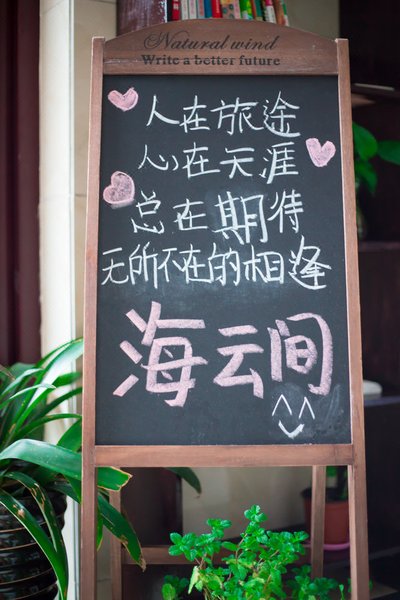 Natural wind
Write a better future
人在旅途
心在天涯
总在期待
无所不在的相逢
海云间